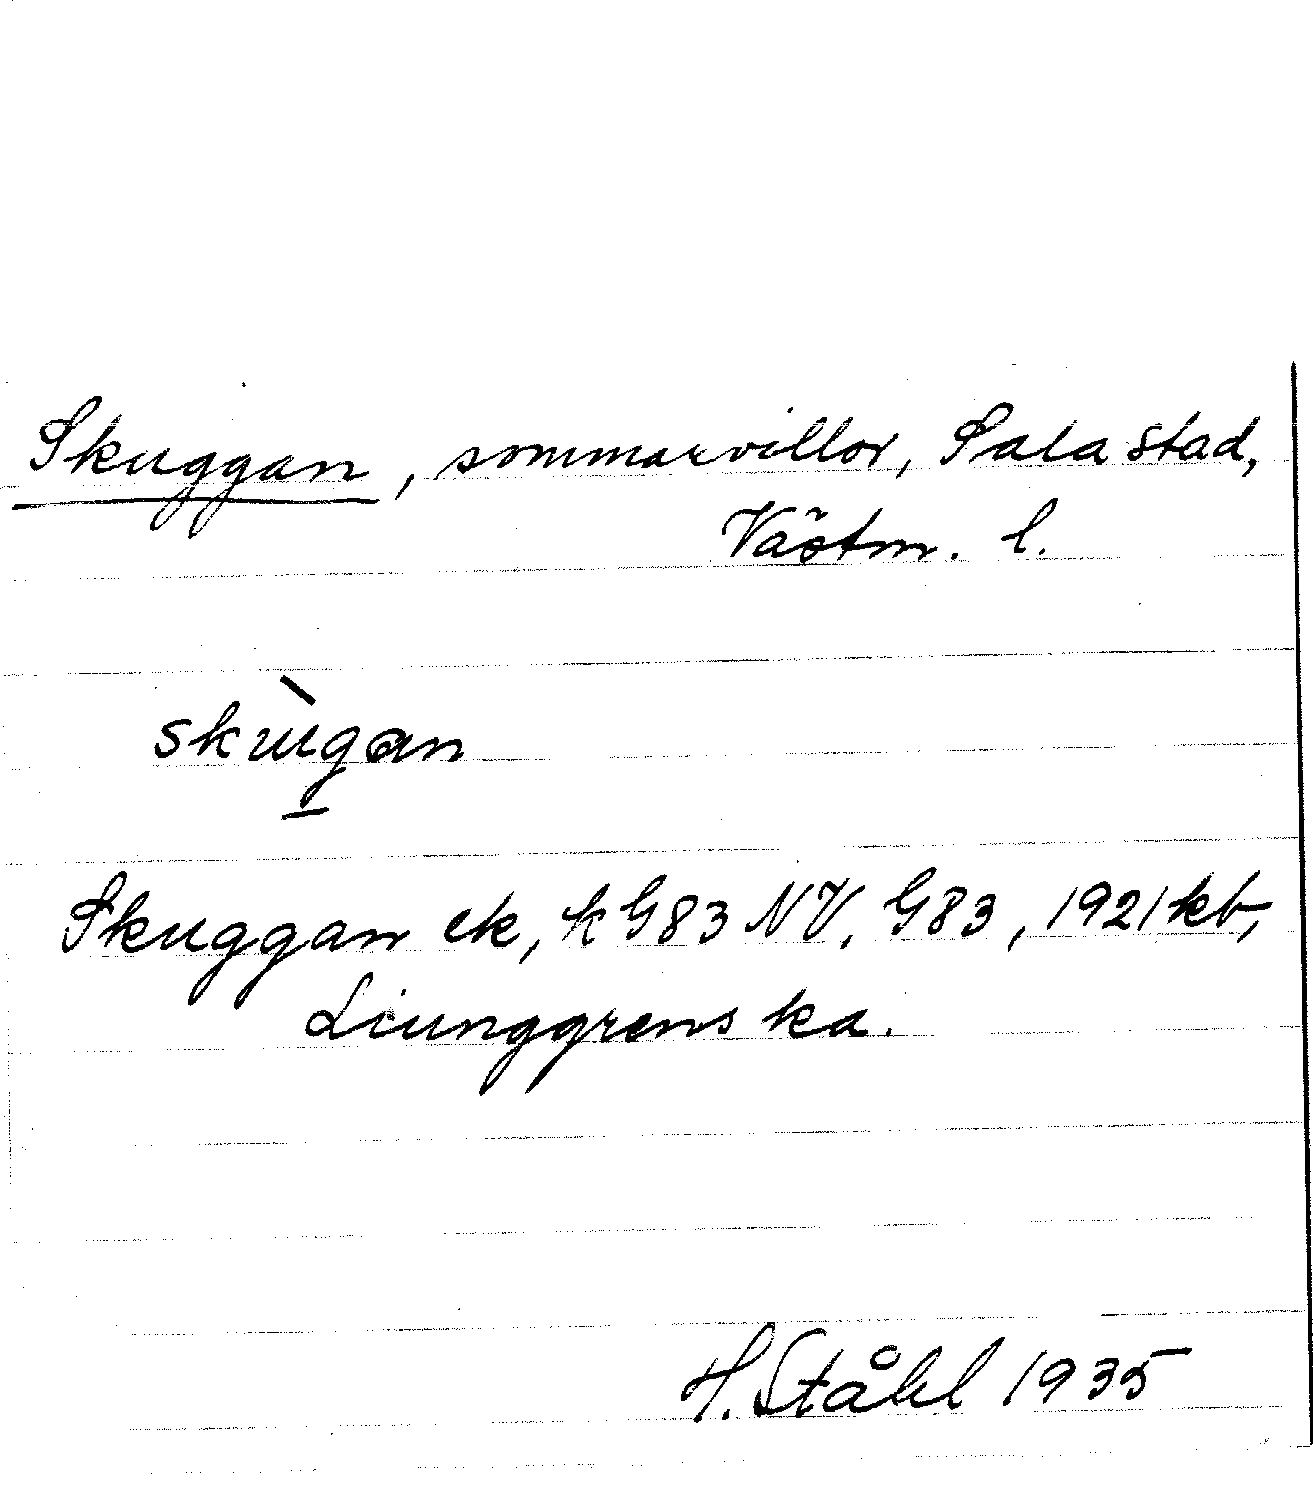 Skuggan, sommarvillor, Sala stad,
Västm. l.
skùgan
Skuggan ek, k G83 NV, G83, 1921 kb,
Ljunggrenska.
H. Ståhl 1935